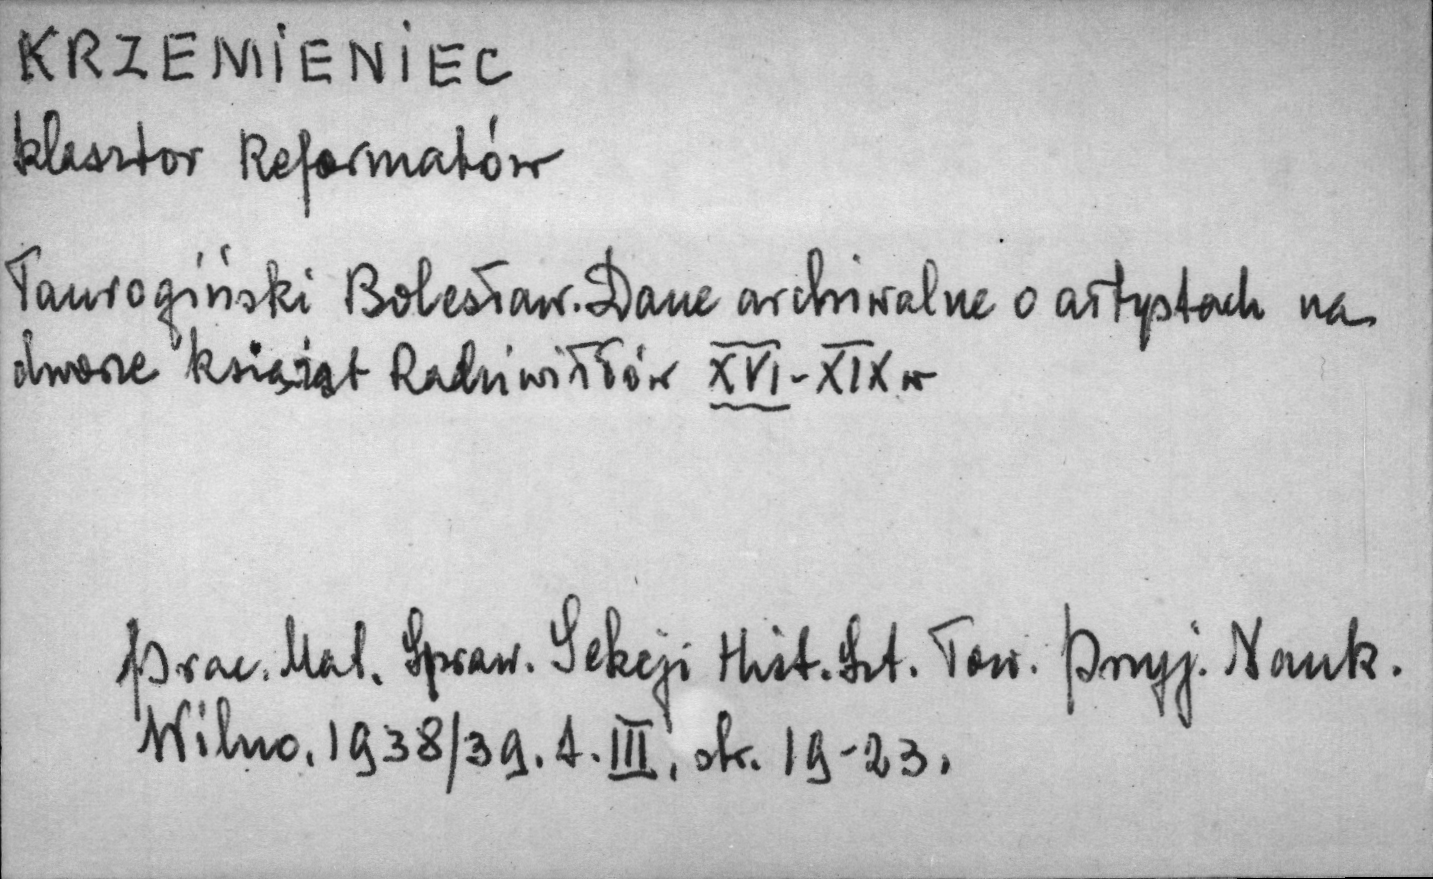 KRZEMIENIEC
klasztor Reformatów
Taurogiński Bolesław. Dane archiwalne o artystach na
dworze książąt Radziwiłłów XVI-XIX w
Prac. Mat. Spraw. Sekcji Hist. Szt. Tow. Przyj. Nauk.
Wilno. 1938/39. t. III, str. 19-23.